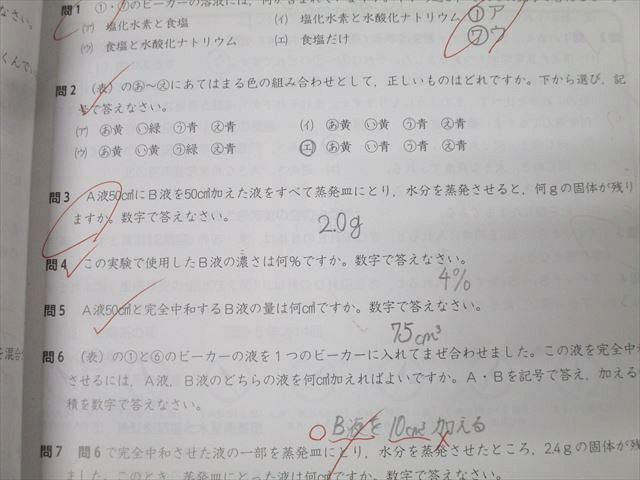 問1 ①・⑦のビーカーの溶液には,何が
(ア) 塩化水素と食塩 (イ) 塩化水素と水酸化ナトリウム ①ア
(ウ) 食塩と水酸化ナトリウム (エ) 食塩だけ ⑦ウ
問2 (表)のあ～えにあてはまる色の組み合わせとして,正しいものはどれですか。下から選び,記
号で答えなさい。
(ア) あ黄 い緑 う青 え青 (イ) あ黄 い黄 う青 え青
(ウ) あ黄 い黄 う緑 え青 (エ) あ黄 い青 う青 え青
問3 A液50cm³にB液を50cm³加えた液をすべて蒸発皿にとり,水分を蒸発させると,何gの固体が残り
ますか。数字で答えなさい。
2.0g
問4 この実験で使用したB液の濃さは何%ですか。数字で答えなさい。
4%
問5 A液50cm³と完全中和するB液の量は何cm³ですか。数字で答えなさい。
75cm³
問6 (表)の①と⑥のビーカーの液を1つのビーカーに入れてまぜ合わせました。この液を完全中和
させるには,A液,B液のどちらの液を何cm³加えればよいですか。A・Bを記号で答え,加える
積を数字で答えなさい。
B液を10cm³加える
問7 問6で完全中和させた液の一部を蒸発皿にとり,水分を蒸発させたところ,2.4gの固体が残
ました。このとき,蒸発皿にとった液は何cm³ですか。数字で答えなさい。